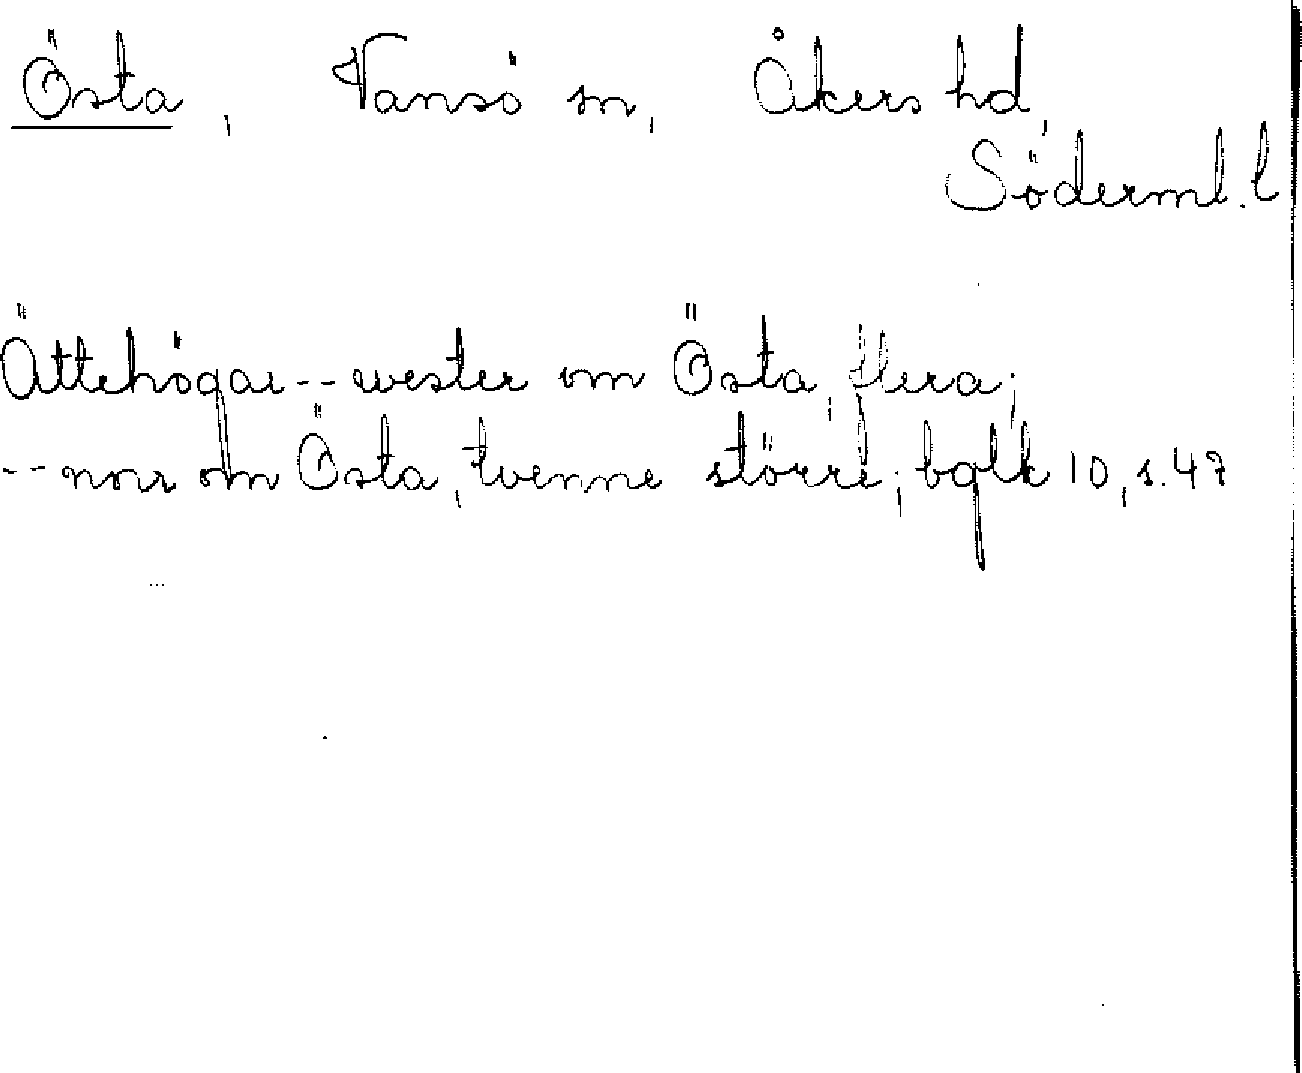 Östa, Vansö sn, Åkers hd,
Söderml. l
Ättehögar -- wester om Östa, flera;
-- norr om Östa, tvenne större; bglk 10, s. 47